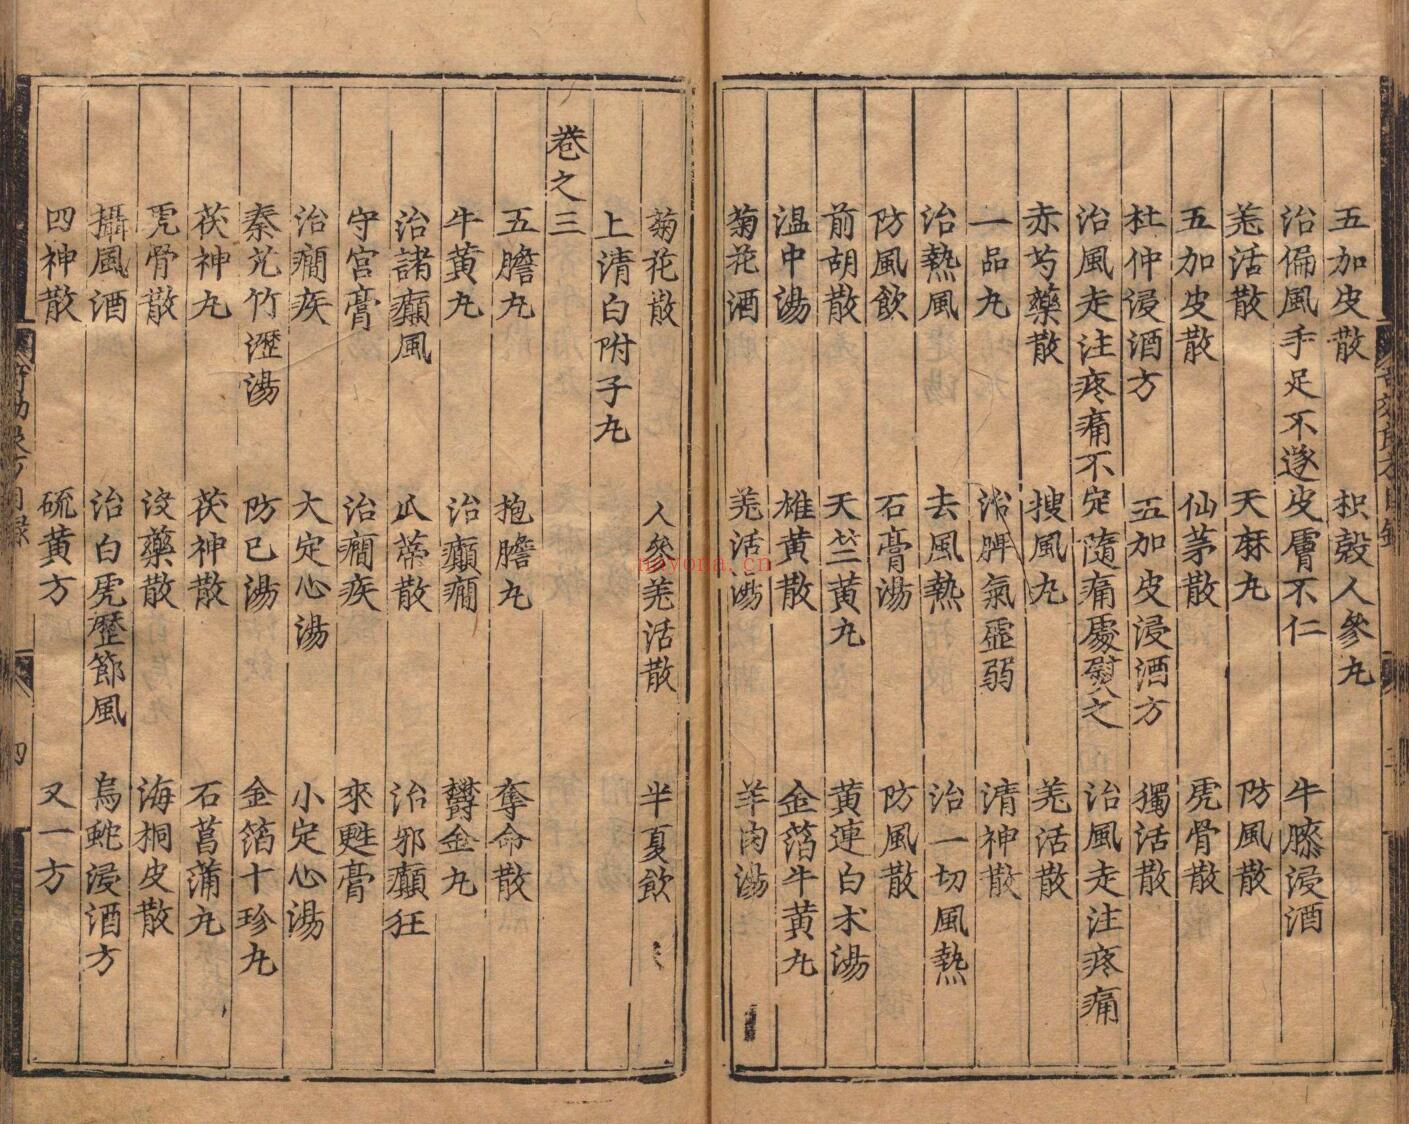 五加皮散 枳殼人參丸
治偏風手足不遂皮膚不仁 牛膝浸酒
羗活散 天麻丸 防風散
五加皮散 仙茅散 虎骨散
杜仲浸酒方 五加皮浸酒方 獨活散
治風走注疼痛不定隨痛處熨之 治風走注疼痛
赤芍藥散 搜風丸 羗活散
一品丸 治脾氣虛弱 清神散
治熱風 去風熱 治一切風熱
防風飲 石膏湯 防風散
前胡散 天竺黃丸 黃連白朮湯
溫中湯 雄黃散 金箔牛黃丸
菊花酒 羗活湯 羊肉湯
菊花散 人參羗活散 半夏飲
上清白附子丸
卷之三
五膽丸 抱膽丸 奪命散
牛黃丸 治癲癇 鬱金丸
治諸癲風 瓜蒂散 治邪癲狂
守宮膏 治癇疾 來甦膏
治癇疾 大定心湯 小定心湯
秦艽竹瀝湯 防己湯 金箔十珍丸
茯神丸 茯神散 石菖蒲丸
虎骨散 沒藥散 海桐皮散
攝風酒 治白虎歷節風 烏蛇浸酒方
四神散 硫黃方 又一方
四
nayona.cn